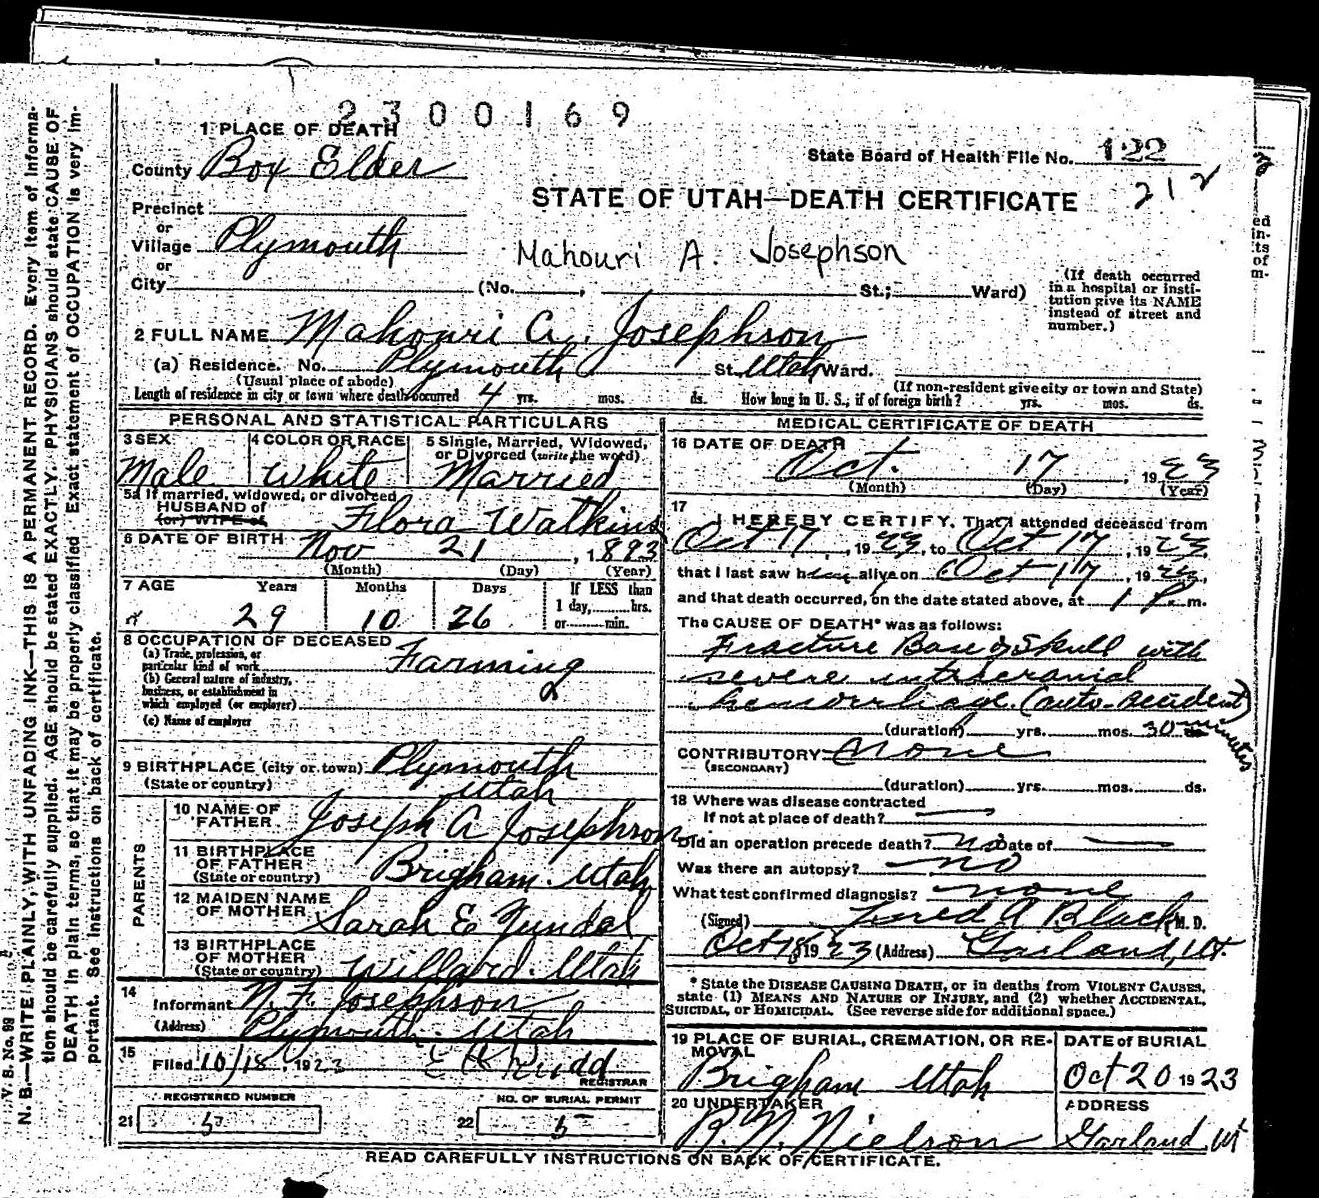 2300169
1 PLACE OF DEATH
County Box Elder
State Board of Health File No. 122
212
STATE OF UTAH—DEATH CERTIFICATE
Precinct
or
Village Plymouth
or
City
Mahouri A. Josephson
(No. , St.; Ward)
(If death occurred in a hospital or insti-
tution give its NAME
instead of street and
number.)
2 FULL NAME Mahonri A. Josephson
(a) Residence. No. Plymouth St. Utah Ward.
(Usual place of abode)
(If non-resident give city or town and State)
Length of residence in city or town where death occurred 4 yrs. mos. ds. How long in U. S.; if of foreign birth? yrs. mos. ds.
PERSONAL AND STATISTICAL PARTICULARS
3 SEX
Male
4 COLOR OR RACE
White
5 Single, Married, Widowed,
or Divorced (write the word)
Married
5a If married, widowed, or divorced
HUSBAND of
(or) WIFE of
Flora Watkins
6 DATE OF BIRTH Nov 21, 1893
(Month) (Day) (Year)
7 AGE Years Months Days
If LESS than
1 day, hrs.
or min.
29 10 26
8 OCCUPATION OF DECEASED
(a) Trade, profession, or
particular kind of work Farming
(b) General nature of industry,
business, or establishment in
which employed (or employer)
(c) Name of employer
9 BIRTHPLACE (city or town) Plymouth
(State or country) Utah
PARENTS
10 NAME OF
FATHER Joseph A Josephson
11 BIRTHPLACE
OF FATHER
(State or country) Brigham. Utah
12 MAIDEN NAME
OF MOTHER Sarah E Zundel
13 BIRTHPLACE
OF MOTHER
(State or country) Willard. Utah
14
Informant N. F. Josephson
(Address) Plymouth. Utah
15
Filed 10/18, 1923 Rudd
REGISTRAR
REGISTERED NUMBER
21 5
NO. OF BURIAL PERMIT
22 5
MEDICAL CERTIFICATE OF DEATH
16 DATE OF DEATH
Oct. 17, 1923
(Month) (Day) (Year)
17
I HEREBY CERTIFY, That I attended deceased from
Oct 17, 1923, to Oct 17, 1923,
that I last saw him alive on Oct 17, 1923,
and that death occurred, on the date stated above, at 1 P. m.
The CAUSE OF DEATH* was as follows:
Fracture Base of Skull with
severe intracranial
hemorrhage. (auto-accident)
(duration) yrs. mos. 30 ds. minutes
CONTRIBUTORY none
(SECONDARY)
(duration) yrs. mos. ds.
18 Where was disease contracted
If not at place of death? —
Did an operation precede death? no Date of —
Was there an autopsy? no
What test confirmed diagnosis? none
(Signed) Fred A Black M. D.
Oct 18, 1923 (Address) Garland, Ut.
* State the DISEASE CAUSING DEATH, or in deaths from VIOLENT CAUSES,
state (1) MEANS AND NATURE OF INJURY, and (2) whether ACCIDENTAL,
SUICIDAL, or HOMICIDAL. (See reverse side for additional space.)
19 PLACE OF BURIAL, CREMATION, OR RE-
MOVAL
Brigham Utah
DATE of BURIAL
Oct 20 1923
20 UNDERTAKER
R. N. Nielson
ADDRESS
Garland Ut
READ CAREFULLY INSTRUCTIONS ON BACK OF CERTIFICATE.
V. S. No. 99
N. B.—WRITE PLAINLY, WITH UNFADING INK—THIS IS A PERMANENT RECORD. Every item of informa-
tion should be carefully supplied. AGE should be stated EXACTLY. PHYSICIANS should state CAUSE OF
DEATH in plain terms, so that it may be properly classified. Exact statement of OCCUPATION is very im-
portant. See instructions on back of certificate.
ed
in-
ts
of
m-